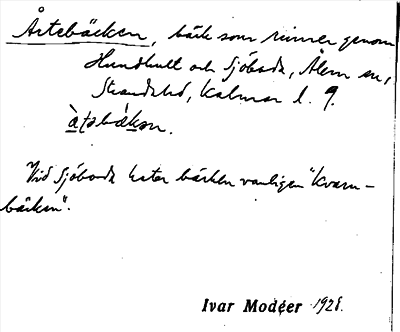 Årtebäcken, bäck som rinner genom
Hundhult och Sjöboda, Ålem sn,
Stranda hd, Kalmar l. 9.
Vid Sjöboda heter bäcken vanligen "Kvarn-
bäcken".
Ivar Modéer 1928.